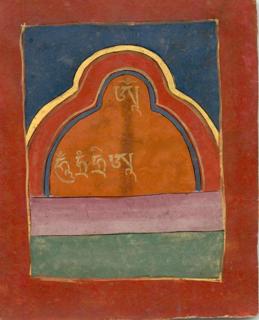 ཨོཾ
ཧཱུྃ ཏྲཱྃ ཧྲཱི ཨཱ